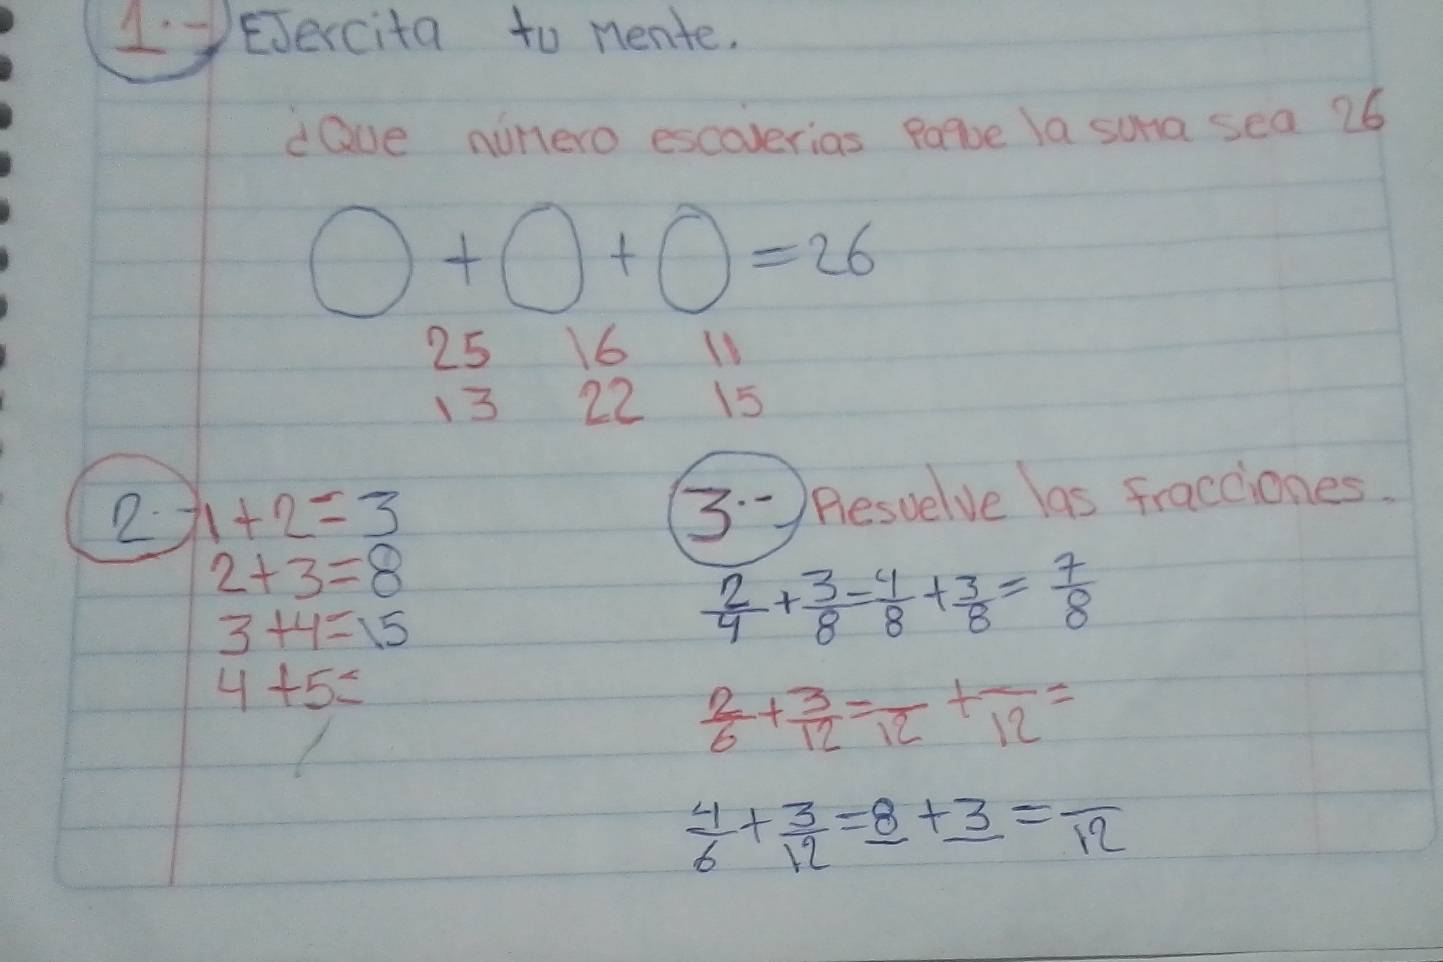 1.- Ejercita tu mente.
¿Que número escoverias paque la suma sea 26
○ + ○ + ○ = 26
25 16 11
13 22 15
2.- 1+2=3
2+3=8
3+4=15
4+5=
3.- Resuelve las fracciones.
2/4 + 3/8 = 4/8 + 3/8 = 7/8
2/6 + 3/12 = /12 + /12 =
4/6 + 3/12 = 8/ + 3/ = /12